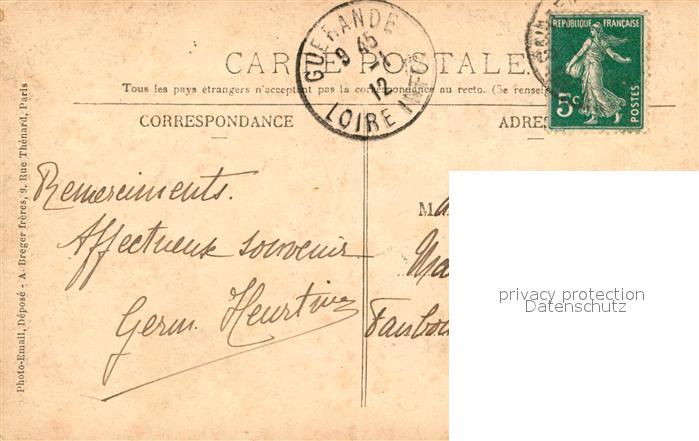 CARTE POSTALE
Tous les pays étrangers n'acceptent pas la correspondance au recto. (Se renseig
CORRESPONDANCE
ADRES
GUERANDE
9 45
12
LOIRE INFRE
REPUBLIQUE FRANÇAISE
5c
POSTES
Remerciments.
Affectueux souvenir
Germ. Heurtin
M
Ma
Faubou
privacy protection
Datenschutz
Photo-Email, Déposé - A. Breger frères, 9. Rue Thénard, Paris